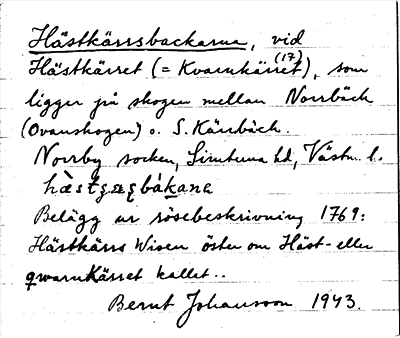 Hästkärrsbackarna, vid
Hästkärret (= Kvarnkärret (17)), som
ligger på skogen mellan Norrbäck
(Ovanskogen) o. S. Kärrbäck.
Norrby socken, Simtuna hd, Västm. l.
Belägg ur rösebeskrivning 1769:
Hästkärrs Wisen öster om Häst- eller
qwarnKärret kallet..
Bernt Johansson 1943.